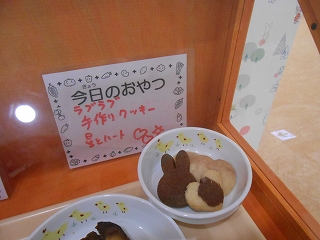 きょう
今日のおやつ
ラブラブ
手作りクッキー
星とハート